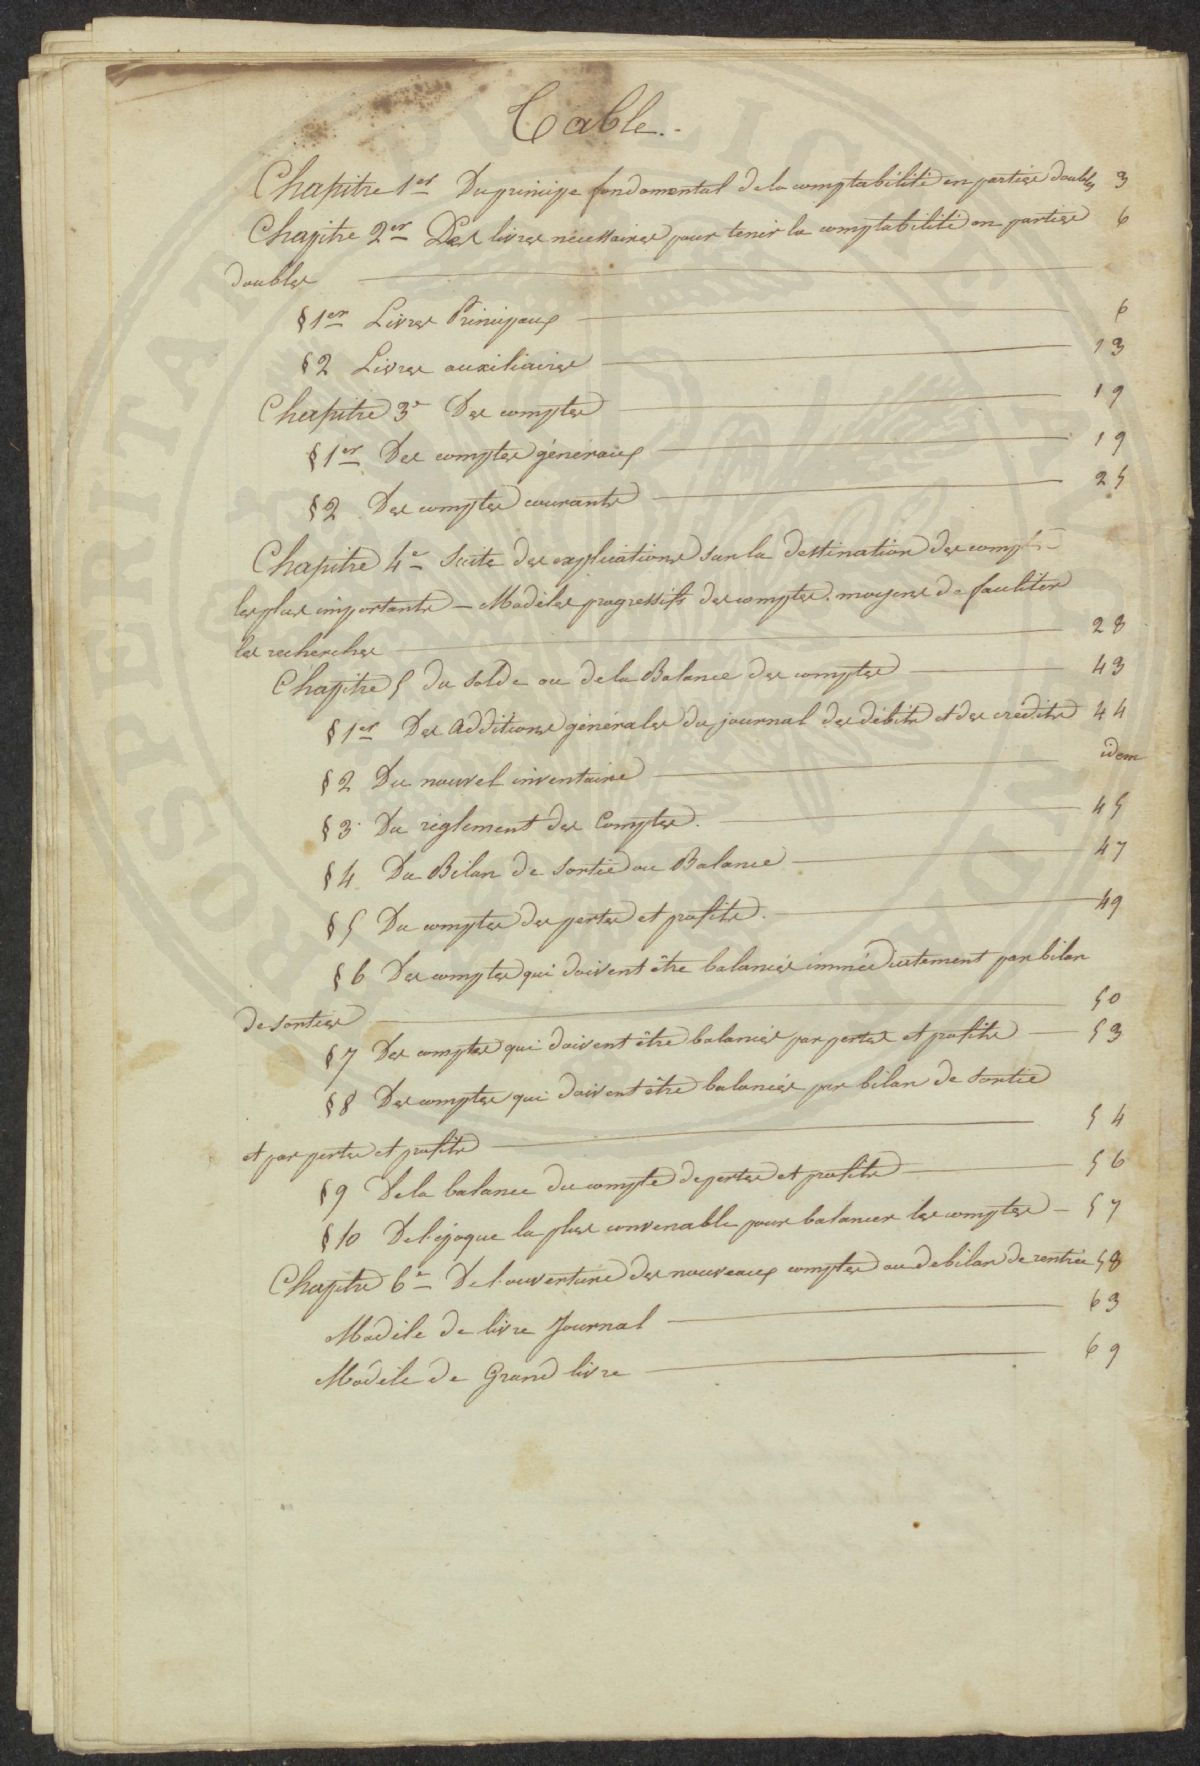 Table.
Chapitre 1er Du principe fondamental de la comptabilité en parties doubles 3
Chapitre 2er Des livres nécessaires pour tenir la comptabilité en parties 6
doubles
§ 1er Livres Principaux 6
§ 2 Livres auxiliaires 13
Chapitre 3e Des comptes 19
§ 1er Des comptes généraux 19
§ 2 Des comptes courants 25
Chapitre 4e Suite des explications sur la destination des comptes
les plus importants — Modèles progressifs des comptes. moyens de faciliter
les recherches 28
Chapitre 5 du solde ou de la Balance des comptes 43
§ 1er Des additions générales du journal des débits et des crédits 44
§ 2 Du nouvel inventaire idem
§ 3. Du règlement des Comptes. 45
§ 4 Du Bilan de Sortie ou Balance 47
§ 5 Du comptes des pertes et profits. 49
§ 6 Des comptes qui doivent être balancés immédiatement par bilan
de sorties 50
§ 7 Des comptes qui doivent être balancés par pertes et profits 53
§ 8 Des comptes qui doivent être balancés par bilan de sortie
et par pertes et profits 54
§ 9 De la balance du compte de pertes et profits 56
§ 10 De l'époque la plus convenable pour balancer les comptes 57
Chapitre 6e De l'ouverture des nouveaux comptes ou de bilan de rentrée 58
Modèle de livre Journal 63
Modèle de Grand livre 69
PROSPERITATI PUBLICAE AUCTA